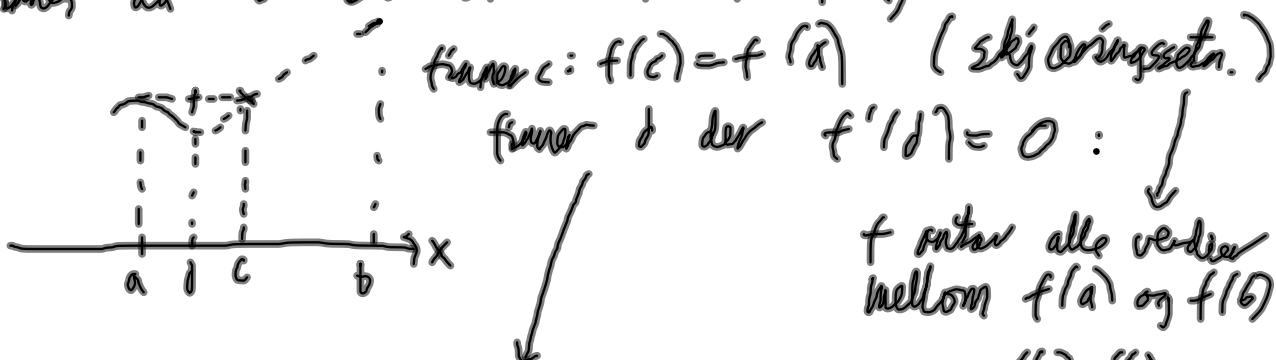 finner c: f(c) = f(a) (skjæringssetn.)
finner d der f'(d) = 0 :
f antar alle verdier
mellom f(a) og f(b)
x
a d c b